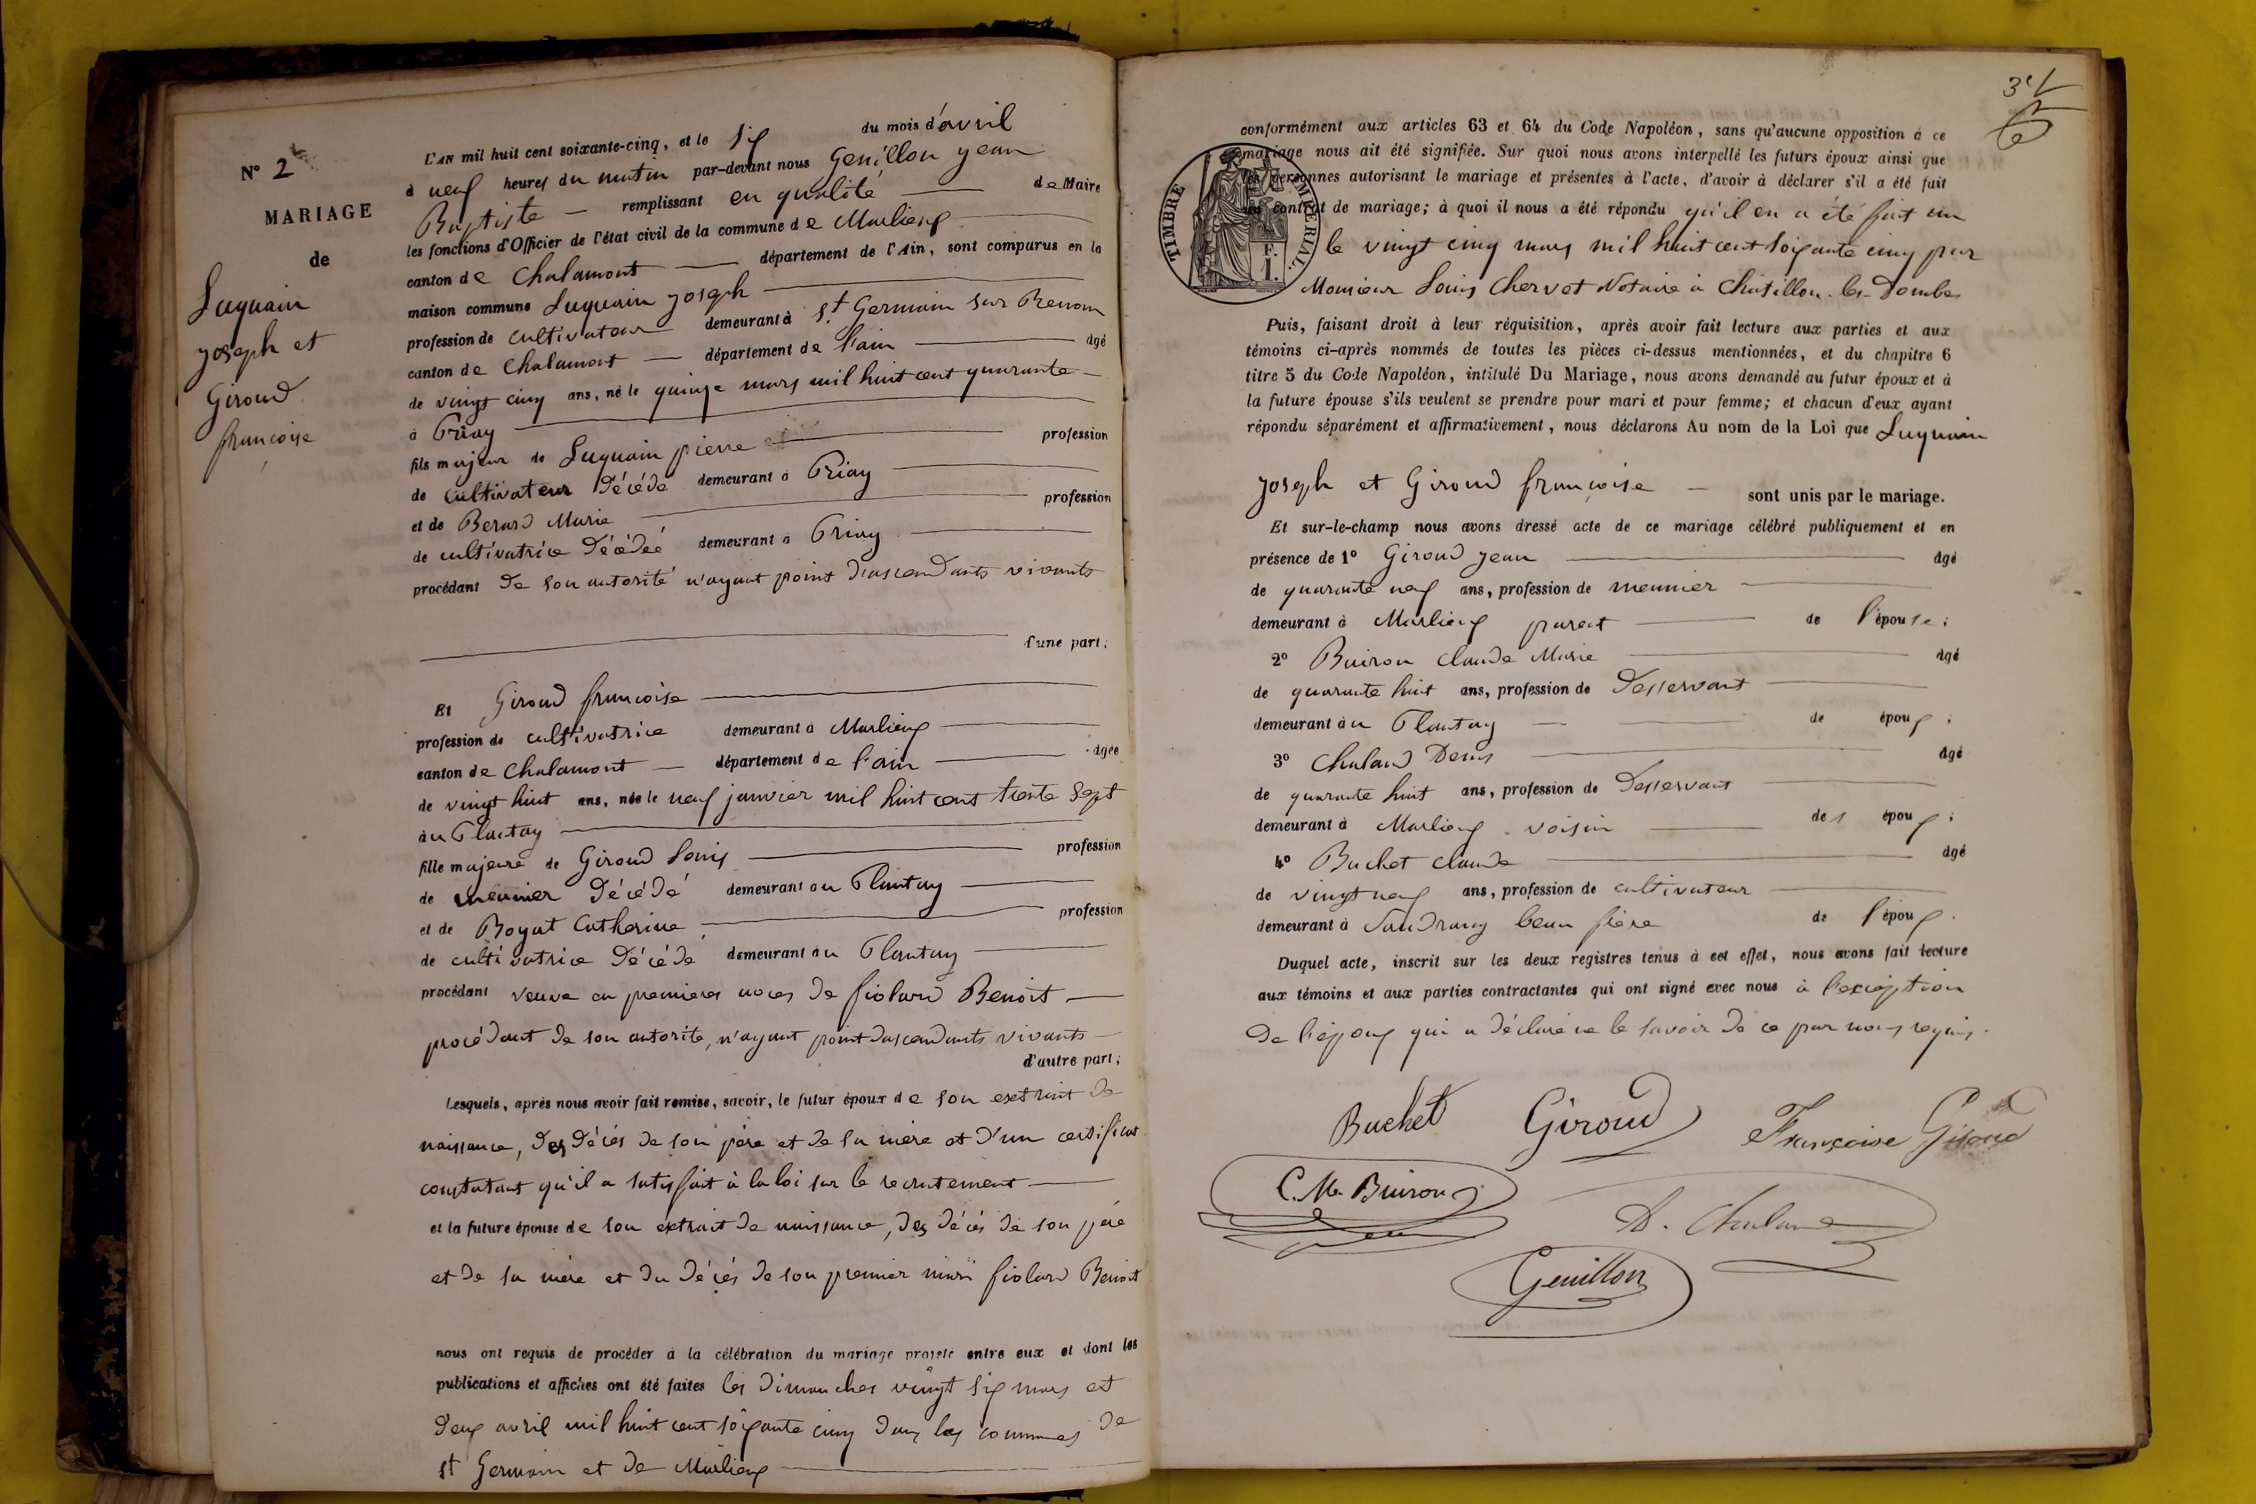 N° 2
MARIAGE
de
Luquain
joseph et
Giroud
françoise
L'AN mil huit cent soixante-cinq, et le six du mois d'avril
à neuf heures du matin par-devant nous Genillon jean
Baptiste remplissant en qualité de Maire
les fonctions d'Officier de l'état civil de la commune de Marlieux
canton de Chalamont département de l'Ain, sont comparus en la
maison commune Luquain joseph
profession de cultivateur demeurant à St Germain sur Renom
canton de Chalamont département de l'ain âgé
de vingt cinq ans, né le quinze mars mil huit cent quarante
à Priay
fils majeur de Luquain pierre profession
de cultivateur décédé demeurant à Priay
et de Berard Marie profession
de cultivatrice décédée demeurant à Priay
procédant de son autorité n'ayant point d'ascendants vivants
d'une part;
Et Giroud françoise
profession de cultivatrice demeurant à Marlieux
canton de Chalamont département de l'ain âgée
de vingt huit ans, née le neuf janvier mil huit cent trente sept
au Plantay
fille majeure de Giroud Louis profession
de meunier décédé demeurant au Plantay
et de Boyat Catherine profession
de cultivatrice décédé demeurant au Plantay
procédant veuve en premieres noces de fiolard Benoit
procédant de son autorité, n'ayant point dascendants vivants
d'autre part;
Lesquels, après nous avoir fait remise, savoir, le futur époux de son extrait de
naissance, des décés de son père et de sa mère et d'un certificat
constatant qu'il a satisfait à la loi sur le recrutement
et la future épouse de son extrait de naissance, des décés de son père
et de sa mère et du décés de son premier mari fiolard Benoit
nous ont requis de procéder à la célébration du mariage projeté entre eux et dont les
publications et affiches ont été faites les dimanches vingt six mars et
deux avril mil huit cent soixante cinq dans les communes de
St Germain et de Marlieux
conformément aux articles 63 et 64 du Code Napoléon, sans qu'aucune opposition à ce
mariage nous ait été signifiée. Sur quoi nous avons interpellé les futurs époux ainsi que
les personnes autorisant le mariage et présentes à l'acte, d'avoir à déclarer s'il a été fait
un contrat de mariage; à quoi il nous a été répondu qu'il en a été fait un
TIMBRE IMPÉRIAL. F. 1.
le vingt cinq mars mil huit cent soixante cinq par
Monsieur Louis Chervet Notaire à Chatillon-les-Dombes
Puis, faisant droit à leur réquisition, après avoir fait lecture aux parties et aux
témoins ci-après nommés de toutes les pièces ci-dessus mentionnées, et du chapitre 6
titre 5 du Code Napoléon, intitulé Du Mariage, nous avons demandé au futur époux et à
la future épouse s'ils veulent se prendre pour mari et pour femme; et chacun d'eux ayant
répondu séparément et affirmativement, nous déclarons Au nom de la Loi que Luquain
joseph et Giroud françoise sont unis par le mariage.
Et sur-le-champ nous avons dressé acte de ce mariage célébré publiquement et en
présence de 1° Giroud jean âgé
de quarante neuf ans, profession de meunier
demeurant à Marlieux parent de l'épouse;
2° Buiron Claude Marie âgé
de quarante huit ans, profession de Desservant
demeurant au Plantay de époux;
3° Chaland Denis âgé
de quarante huit ans, profession de Desservant
demeurant à Marlieux voisin des époux;
4° Buchet Claude âgé
de vingt neuf ans, profession de cultivateur
demeurant à Sandrans beau frère de l'époux.
Duquel acte, inscrit sur les deux registres tenus à cet effet, nous avons fait lecture
aux témoins et aux parties contractantes qui ont signé avec nous à l'exception
de l'époux qui a déclaré ne le savoir de ce par nous requis.
Buchet Giroud Françoise Giroud
C. M. Buiron D. Chaland
Genillon